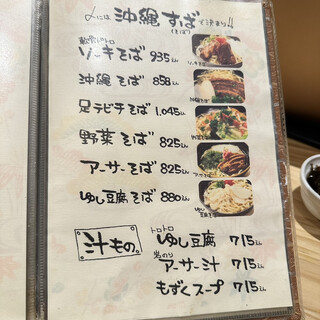 〆には 沖縄すばで決まり!!
(そば)
軟骨トロトロ
ソーキそば 935
沖縄そば 858
足テビチそば 1,045
野菜そば 825
アーサーそば 825
ゆし豆腐そば 880
汁もの。
トロトロ
ゆし豆腐 715
岩のり
アーサー汁 715
もずくスープ 715